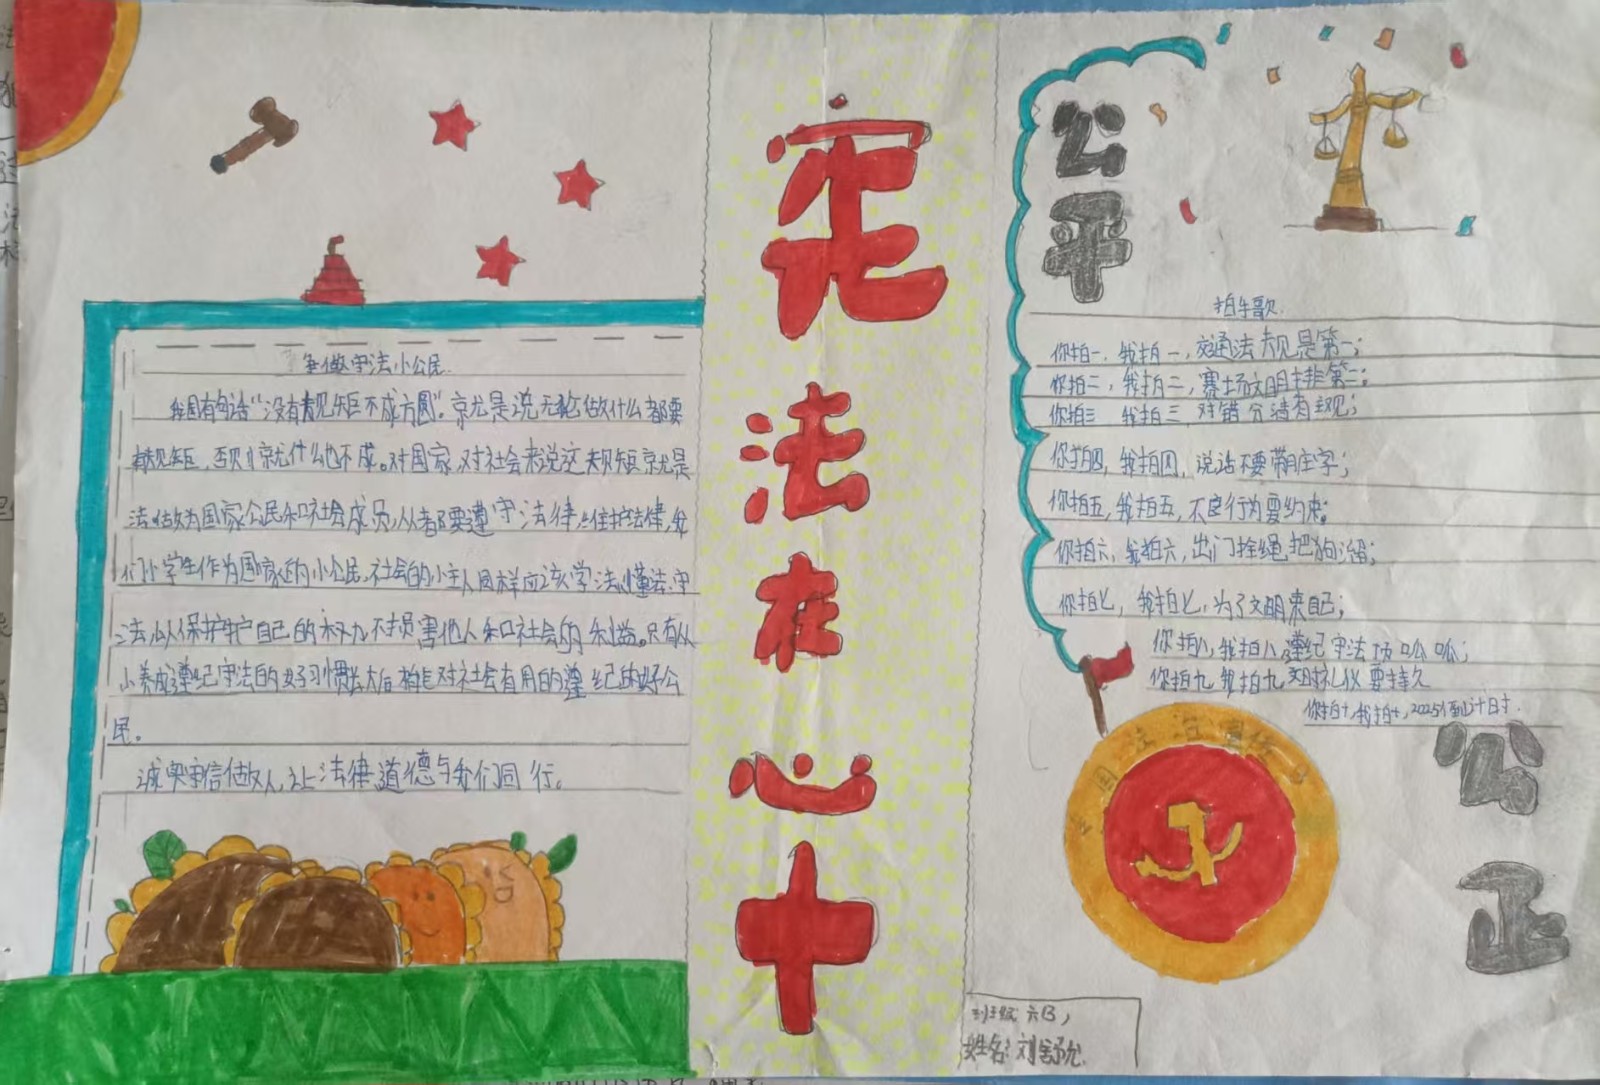 争做守法小公民
我国有句话“没有规矩不成方圆”。就是说无论做什么都要
有规矩,否则就什么也不成。对国家,对社会来说这规矩就是
法做为国家公民和社会成员,人都要遵守法律,维护法律,我
们小学生作为国家的小公民,社会的小主人同样应该学法、懂法、守
法,从保护自己的权不损害他人和社会的利益。只有从
小养成遵纪守法的好习惯长大后才能对社会有用的遵纪的好公
民。
诚实守信做人,让法律道德与我们同行。
宪法在心中
公平
拍手歌
你拍一,我拍一,交通法规是第一;
你拍二,我拍二,赛场文明排第二;
你拍三,我拍三,对错分清有主观;
你拍四,我拍四,说话不要带脏字;
你拍五,我拍五,不良行为要约束;
你拍六,我拍六,出门拴绳把狗溜;
你拍七,我拍七,为了文明来自己;
你拍八,我拍八,遵纪守法顶呱呱;
你拍九,我拍九,文明礼仪要持久
你拍十,我拍十,2025倒计时.
全国法治宣传日
公正
班级:六(3)
姓名:刘舒允